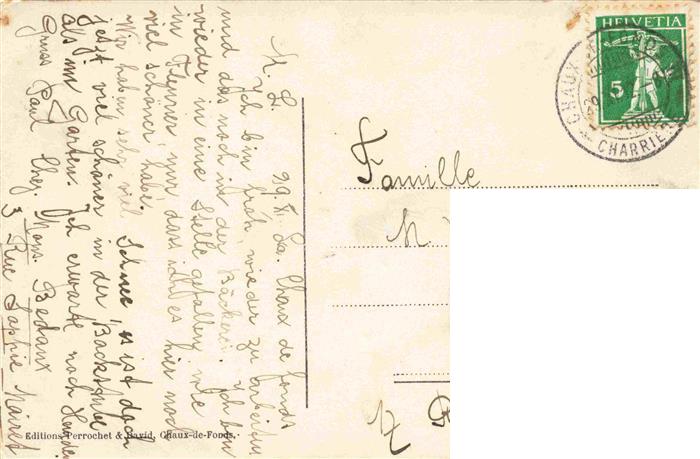 29. XI. La Chaux de fonds
M. L.
Ich bin froh, wieder zu arbeiten
und das noch in der Bäckerei. Ich bin
wieder in eine Stelle gefallen, wie
im Fleurier, nur, dass ich es hier noch
viel schöner habe.
Wir haben sehr viel Schnee, es ist doch
jetzt viel schöner in der Backstube
als im Garten. Ich erwarte noch
Gruss Paul Chez Mons. Bedaux
3 Rue Sophie Mairet
Editions Perrochet & David, Chaux-de-Fonds.
HELVETIA
5
CHAUX-
CHARRIÈ
Famille
M.